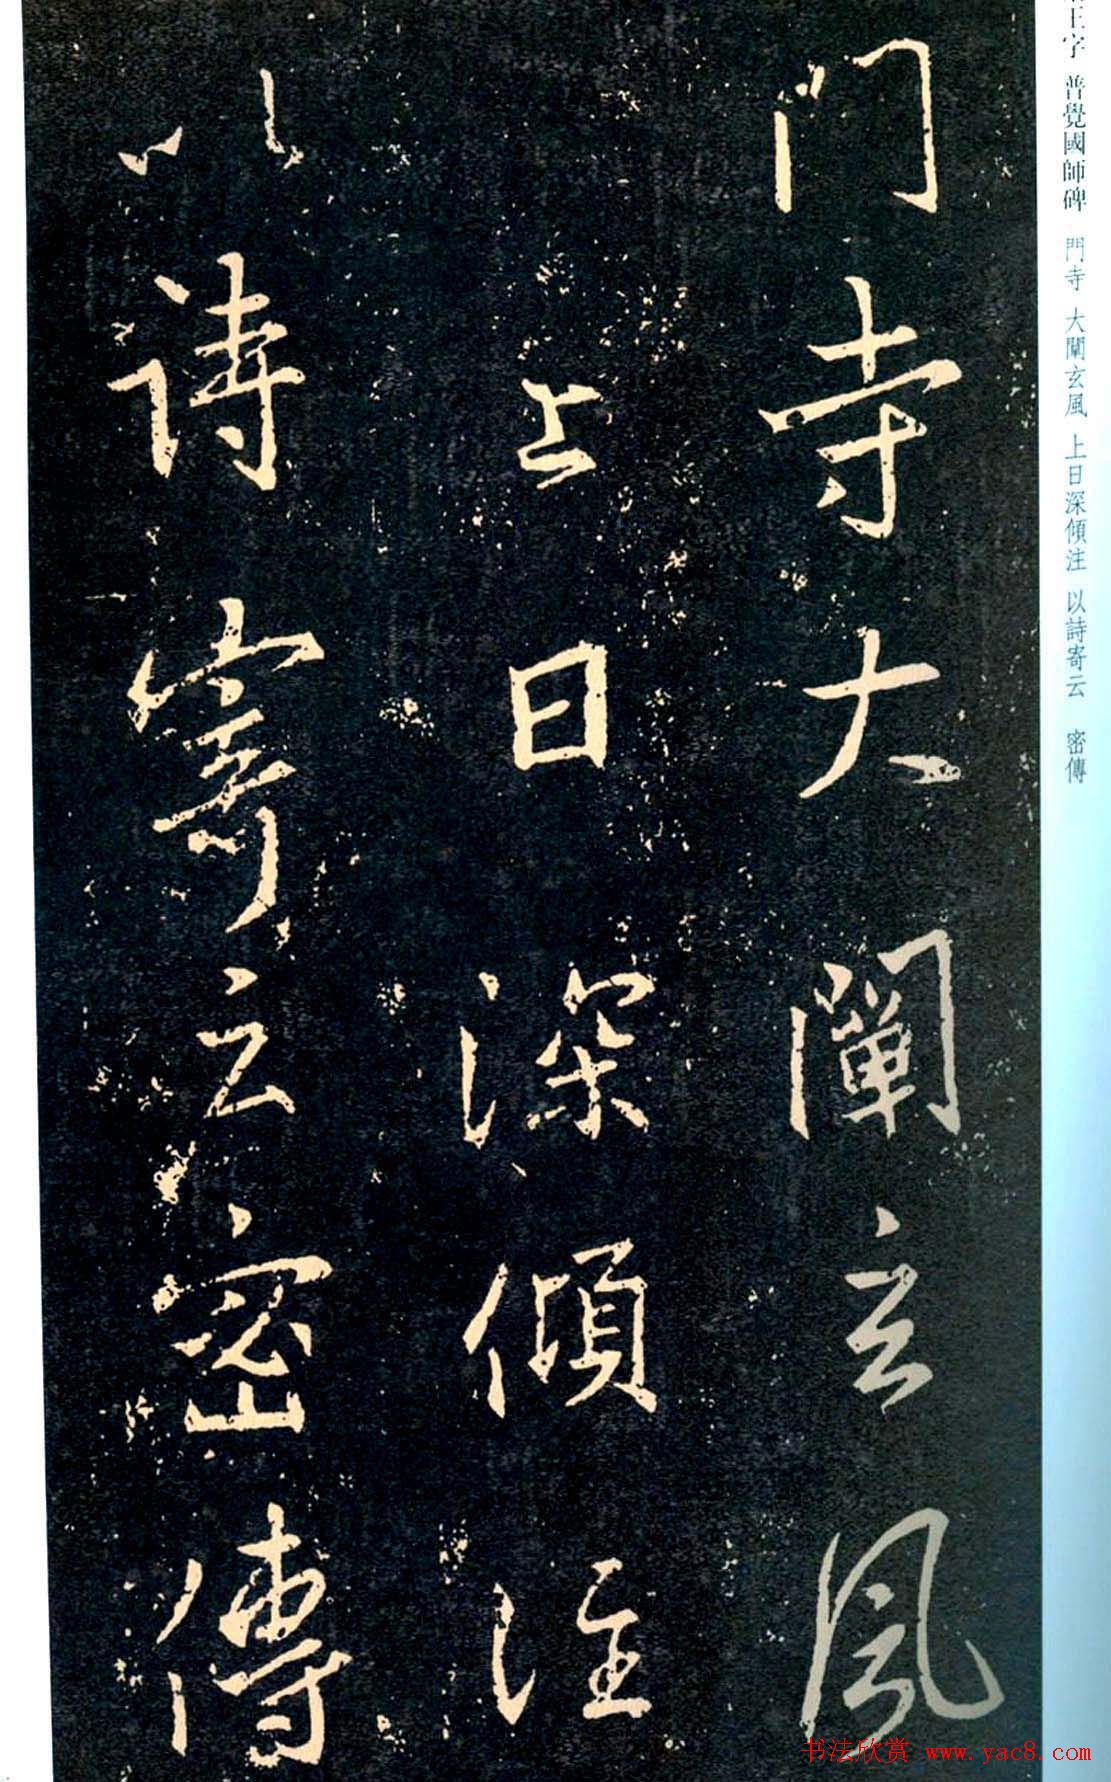 門寺大闡玄風
上日深傾注
以詩寄云密傳
王字 普覺國師碑 門寺 大闡玄風 上日深傾注 以詩寄云 密傳
书法欣赏 www.yac8.com